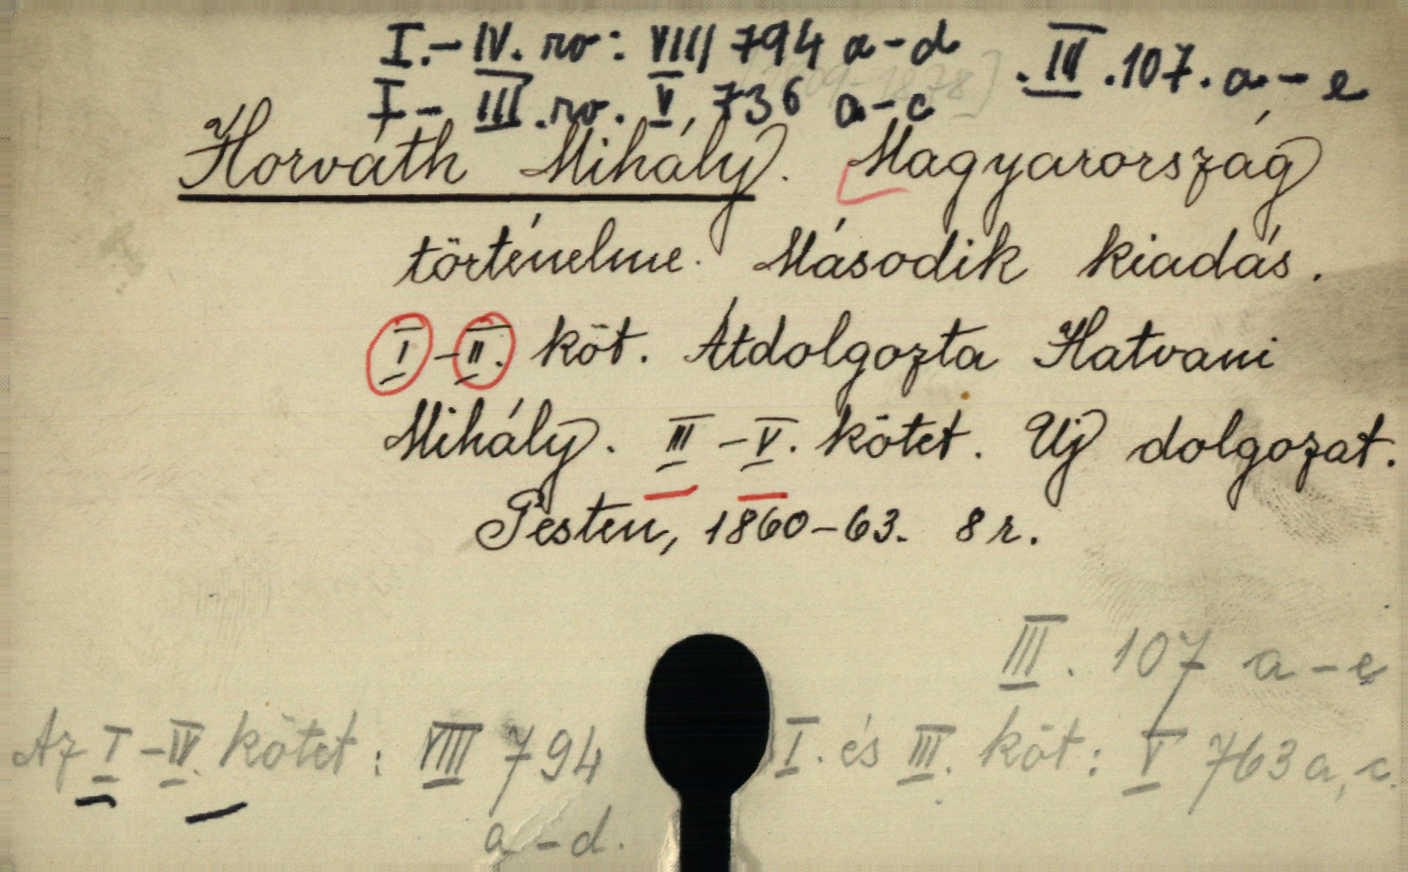 I.-IV. ro: VIII 794 a-d .III.107. a-e
[1809-1878]
I-III.ro. V 736 a-c
Horváth Mihály. Magyarország
történelme. Második kiadás.
I-II. köt. Átdolgozta Hatvani
Mihály. III-V. kötet. Uj dolgozat.
Pesten, 1860-63. 8r.
III. 107 a-e
Az I-IV. kötet: VIII 794 I. és III. köt: V 763 a, c.
a-d.